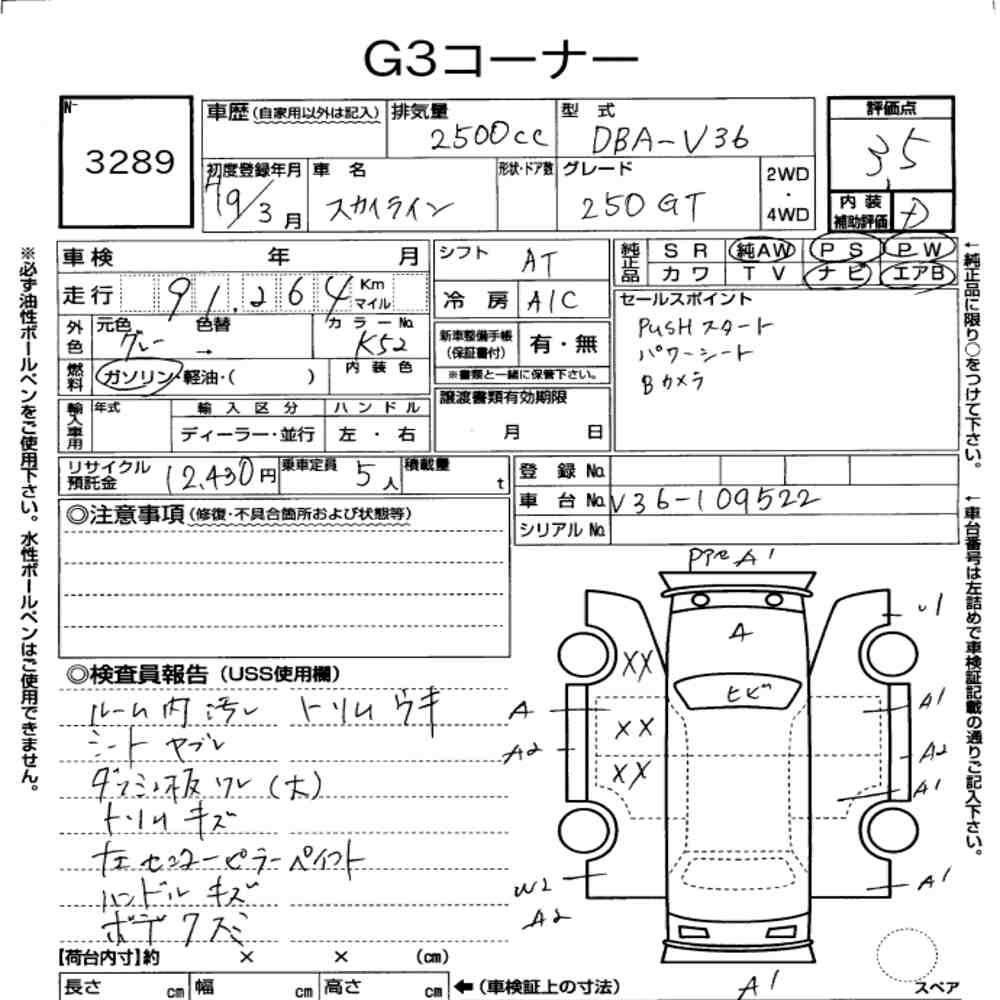 G3コーナー
N-
3289
車歴(自家用以外は記入)
排気量
2500cc
型 式
DBA-V36
評価点
3.5
初度登録年月
H19/3月
車 名
スカイライン
形状・ドア数
グレード
250GT
2WD
・
4WD
内 装
補助評価
D
車検 年 月
シフト
AT
純正品
SR 純AW PS PW
カワ TV ナビ エアB
走行
91.264
Km
マイル
冷 房
A/C
セールスポイント
PUSHスタート
パワーシート
Bカメラ
外色
元色
グレー
色替
→
カラーNo.
K52
新車整備手帳
(保証書付)
有・無
※書類と一緒に保管下さい。
燃料
ガソリン・軽油・( )
内 装 色
譲渡書類有効期限
月 日
輸入車用
年式
輸 入 区 分
ディーラー・並行
ハ ン ド ル
左 ・ 右
リサイクル
預託金
12,430円
乗車定員
5人
積載量
t
登 録 No.
車 台 No.
V36-109522
シリアル No.
◎注意事項(修復・不具合箇所および状態等)
◎検査員報告(USS使用欄)
ルーム内汚レ トリムウキ
シートヤブレ
ダッシュ板ワレ(大)
トリムキズ
左センターピラーペイント
ハンドルキズ
ボデークスミ
A1
A
ヒビ
U1
XX
XX
XX
A
A2
W2
A2
A1
A2
A1
A1
A1
スペア
【荷台内寸】約 × × (cm)
長さ cm
幅 cm
高さ cm
←(車検証上の寸法)
※必ず油性ボールペンをご使用下さい。水性ボールペンはご使用できません。
←純正品に限り○をつけて下さい。
←車台番号は左詰めで車検証記載の通りご記入下さい。